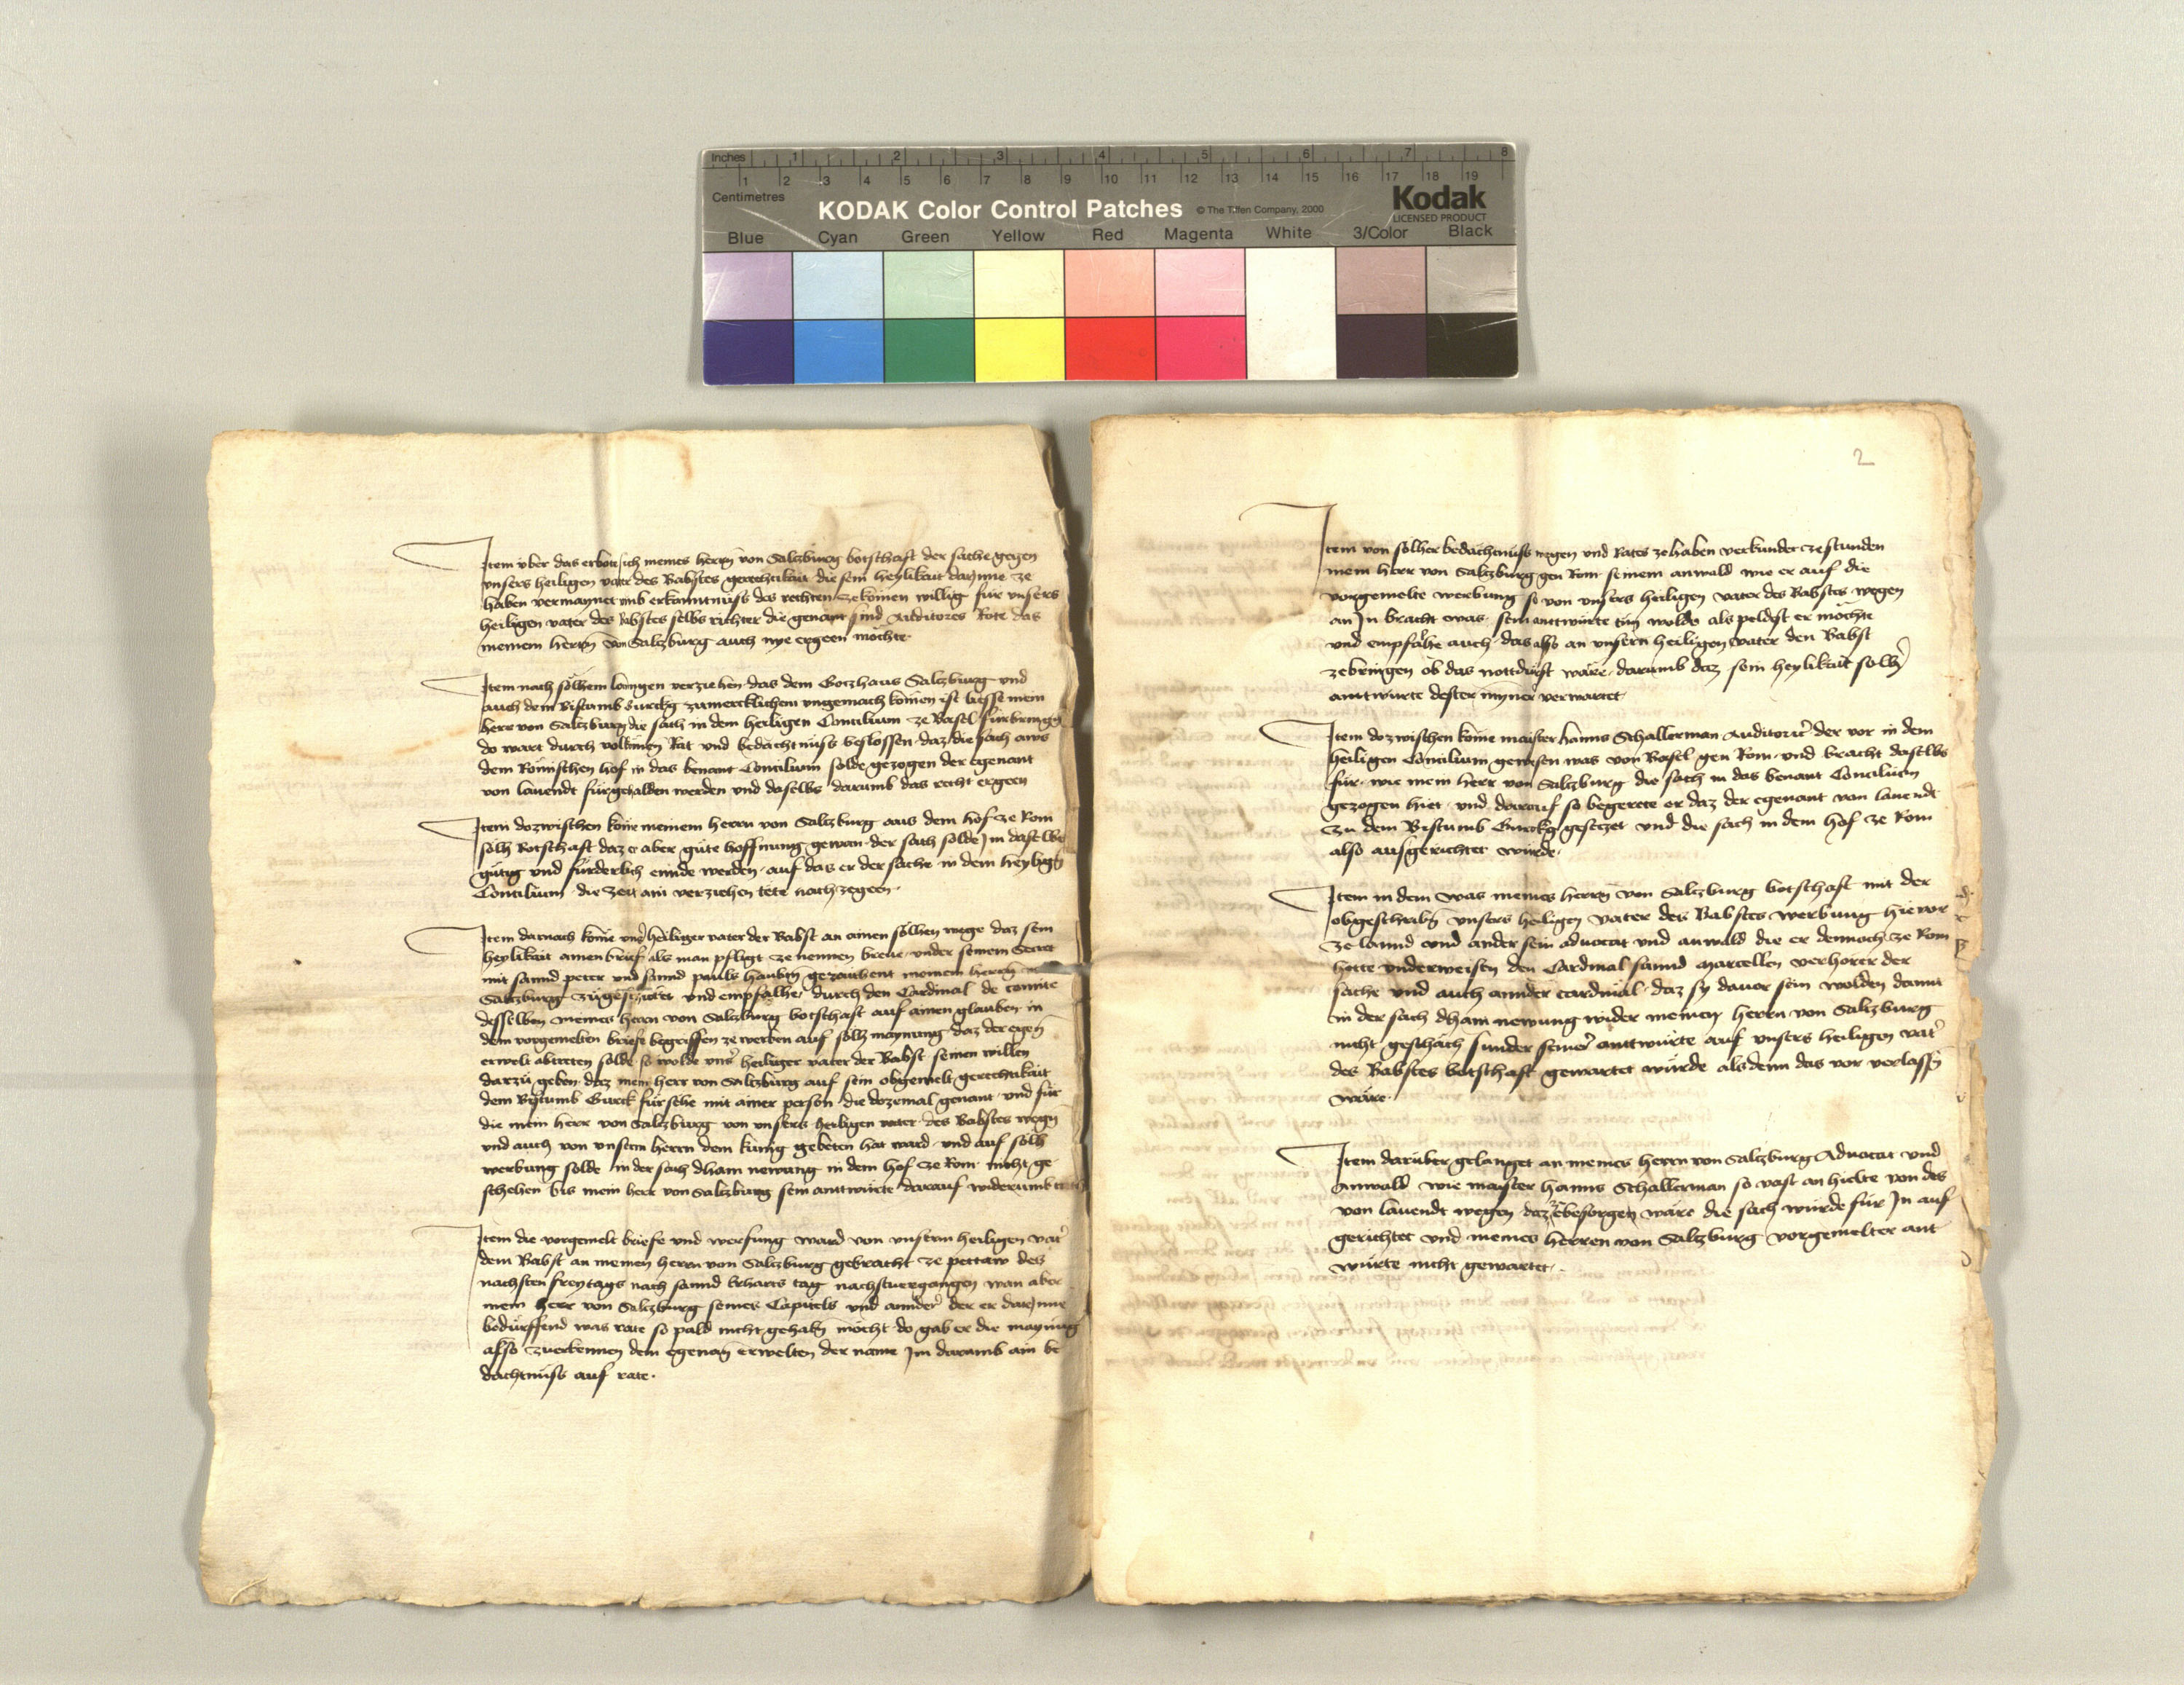 Inches 1 2 3 4 5 6 7 8
1 2 3 4 5 6 7 8 9 10 11 12 13 14 15 16 17 18 19
Centimetres
KODAK Color Control Patches © The Tiffen Company, 2000 Kodak
LICENSED PRODUCT
Blue Cyan Green Yellow Red Magenta White 3/Color Black
Item über das erbote sich meines herrn von Saltzburg botschaft der sache gegen
unsers heiligen vater des Babstes gerechtikait die sein heylikait darjnne ze
haben vermaynet umb erkanntnüss des rechten ze komen willig für unsers
heiligen vater des babstes selbs richter die genant sind Auditores Rote das
meinem herrn von Saltzburg auch nye ergeen möchte
Item nach sölhem langen verziehen das dem Gotzhaus Saltzburg und
auch dem Bistumb Gurckg zumercklichem ungemach komen ist liesse mein
herr von Saltzburg die sach in dem heiligen Concilium ze Basel fürbringen
do wart durch volkomen Rat und bedachtnüss beslossen daz die sach aws
dem Römischen hof in das benant Concilium solde gezogen der egenant
von lauendt fürgehalden werden und daselbs darumb das recht ergeen
Item dozwischen kome meinem herrn von Saltzburg aus dem hof ze Rom
sölh Botschaft daz er aber güte hoffnung gewan der sach solde Im daselbs
gütig und fürderlich ennde werden auf das er der sache in dem heyligen
Concilium die zeit ain verziehen tete nach zegeen
Item darnach kome unser heiliger vater der Babst an ainen sölhen wege daz sein
heylikait ainen brief als man pfligt ze nennen breue under seinem Secret
mit sannd peter und sannd pauls haubten gezaichent meinem herrn
Saltzburg zügeschickt und empfalhe durch den Cardinal de comite
desselben meines herrn von Saltzburg botschaft auf ainen glauben in
dem vorgemelten briefe begriffen ze werben auf sölh maynung daz der egen
erwelt abtreten solde so wolde unser heiliger vater der Babst seinen willen
darzü geben daz mein herr von Saltzburg auf sein obgemelt gerechtikait
dem Bistumb Gurck fürsehe mit ainer person die dozemal genant und für
die mein herr von Saltzburg von unsers heiligen vater des Babstes wegn
und auch von unserm herrn dem künig gebeten hat ward und auf sölh
werbung solde in der sach dhain newung in dem hof ze Rom nicht ge
schehen bis mein herr von Saltzburg sein anttwürte darauf widerumb
Item die vorgemelt briefe und werfung ward von unserm heiligen vater
dem Babst an meinen herrn von Saltzburg gebracht ze pettaw des
nachsten freytags nach sannd Erharts tag nachstuergangen wan aber
mein herr von Saltzburg seines Capitels und annder der er darjnne
bedürffend was rate so pald nicht gehaben möcht do gab er die maynung
also zuerkennen dem egenan erwelten der name Im darumb ain be
dachtnüss auf rate
2
Item von solher bedachtnüss wegen und Rates ze haben verkundet ze stunden
mein herr von Saltzburg gen Rom seinem anwald wie er auf die
vorgemelte werbung so von unsers heiligen vater des Babstes wegen
an In bracht was sein anttwürte tün wolde als peldist er möchte
und empfalhe auch das also an unsern heiligen vater den Babst
zebringen ob das nottdürft wäre darumb daz sein heylikait solher
anttwurte dester mynner verwartet
Item dozwischen kome maister hanns Schallerman Auditor der vor in dem
heiligen Concilium gewesen was von Basel gen Rom und bracht daselbs
für wie mein herr von Saltzburg die sach in das benant Concilium
gezogen hiet und darauf so begerete er daz der egenant von lauendt
zu dem Bistumb Gurckg gesetzet und die sach in dem hof ze Rom
also ausgerichtet würde
Item in dem was meines herrn von Saltzburg botschaft mit der
obgeschriben unsers heiligen vater des Babstes werbung hiewr
ze lannd und ander sein aduocat und anwald die er dennoch ze Rom
hette underweisten den Cardinal sannd Marcellen verhörer der
sache und auch annder cardinäl daz sy dauor sein wolden damit
in der sach dhain newung wider meinen herrn von Saltzburg
nicht geschäch sunder seiner anttwürte auf unsers heiligen vater
des Babstes botschaft gewartet würde als denn das vor verlassen
wäre
Item darüber gelanget an meines herrn von Saltzburg Aduocat und
Anwald wie maister hanns Schallerman so vast an hielte von des
von lauendt wegen daz ze besorgen wäre die sach würde für In auf
gerichtet und meines herren von Saltzburg vorgemelter ant
würte nicht gewartet